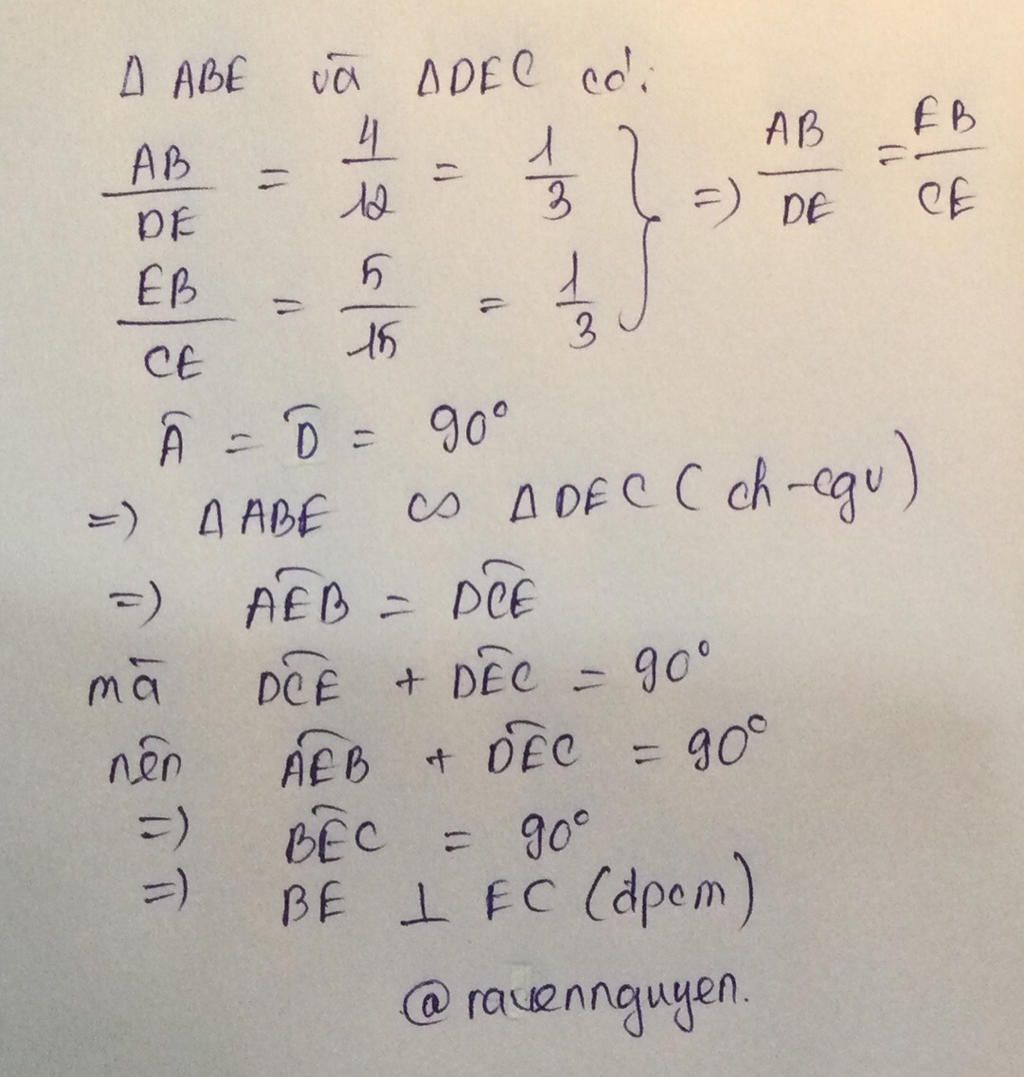 Δ ABE và ΔDEC có:
AB/DE = 4/12 = 1/3
EB/CE = 5/15 = 1/3 } => AB/DE = EB/CE
Â = D̂ = 90°
=> Δ ABE ∽ Δ DEC (ch-cgv)
=> AÊB = DĈE
mà DĈE + DÊC = 90°
nên AÊB + DÊC = 90°
=> BÊC = 90°
=> BE ⊥ EC (dpcm)
@ravennguyen.